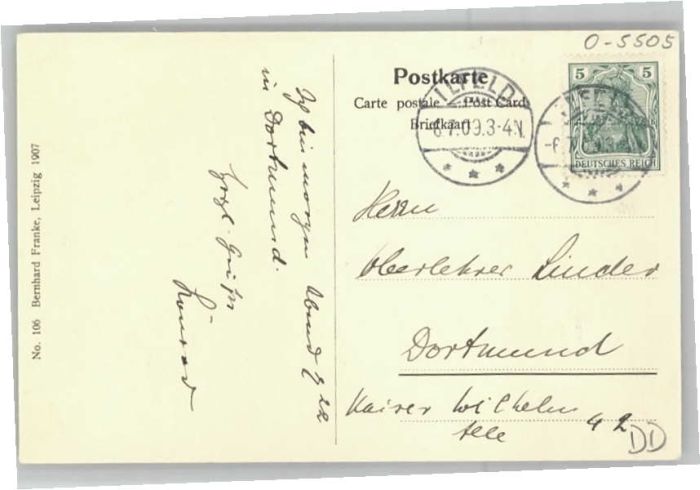 O-5505
Postkarte
Carte postale — Post Card
Briefkaart
ILFELD
6.7.09.3-4N.
5 5
DEUTSCHES REICH
ILFELD
-6.7.09.3-4N.
Herrn
Oberlehrer Linder
Dortmund
Kaiser Wilhelm
Alle 42
DD
Ich bin morgen Abend
in Dortmund.
Herzl. Grüße
Konrad
No. 106 Bernhard Franke, Leipzig 1907